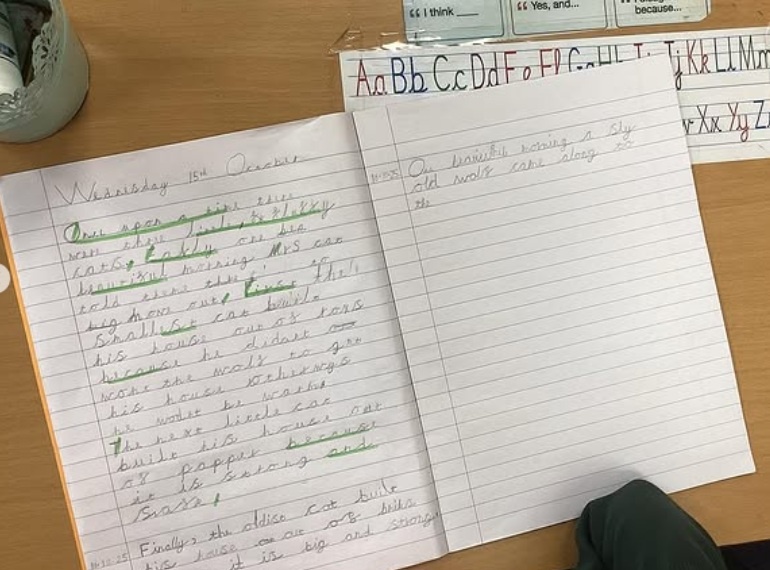 I think
Yes, and...
because...
Aa Bb Cc Dd Ee Ff Gg Hh Ii Jj Kk Ll Mm
Xx Yy Z
Wednesday 15th October
Once upon a time there
were three little, fluffy
cats. Early one
beautiful morning Mrs cat
told there
big move out. First the
smallest cat built
his house out of
because he didant
wont the wolf to get
his house
he
The next little cat
built his house out
of papper because
it is strong and
safe.
Finally, the oldist cat built
his house out of briks
it is big and strong
One morning a sly
old wolf came along to
the